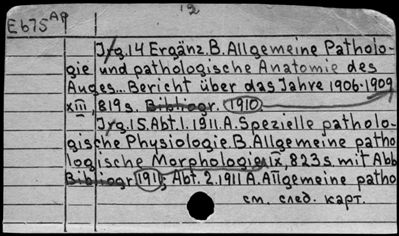 12
E675 Ap
Jrg.14 Ergänz.B. Allgemeine Patholo-
gie und pathologische Anatomie des
Auges... Bericht über das Jahre 1906-1909
XIII, 819 s. Bibliogr. 1910
Jrg.15. Abt.1. 1911 A. Spezielle patholo-
gische Physiologie. B. Allgemeine patho
logische Morphologie IX, 823 s. mit Abb
Bibliogr 1911, Abt. 2. 1911 A. Allgemeine patho
см. след. карт.